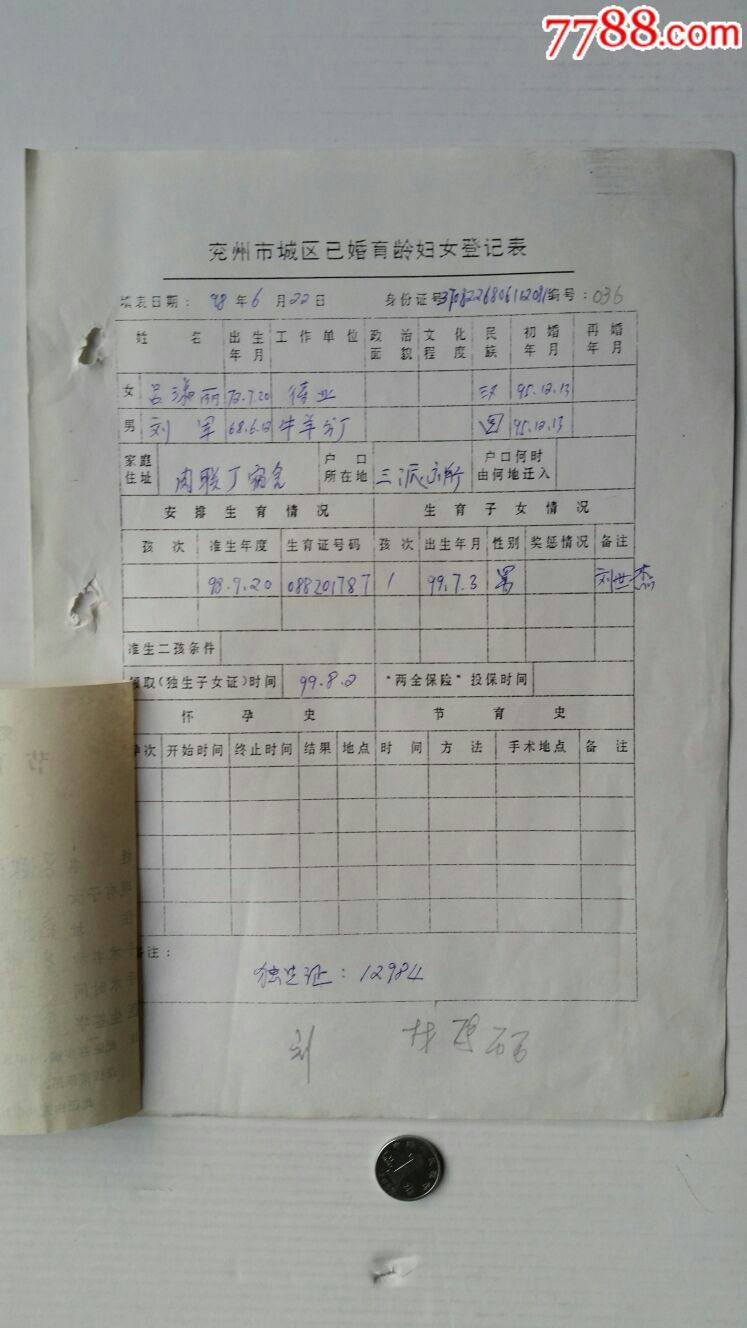 7788.com
兖州市城区已婚育龄妇女登记表
填表日期： 98 年 6 月 22 日 身份证号 编号：036
姓 名 出生年月 工作单位 政治面貌 文化程度 民族 初婚年月 再婚年月
女 吕 丽 72.7.20 待业 汉 95.12.13
男 刘 军 68.6.12 牛羊分厂 回 95.12.13
家庭住址 肉联厂宿舍 户口所在地 三派出所 户口何时由何地迁入
安排生育情况 生育子女情况
孩次 准生年度 生育证号码 孩次 出生年月 性别 奖惩情况 备注
98.9.20 088201787 1 99.7.3 男 刘世杰
准生二孩条件
领取(独生子女证)时间 99.8.2 "两全保险"投保时间
怀孕史 节育史
孕次 开始时间 终止时间 结果 地点 时间 方法 手术地点 备注
备注：
独生证：12984
刘